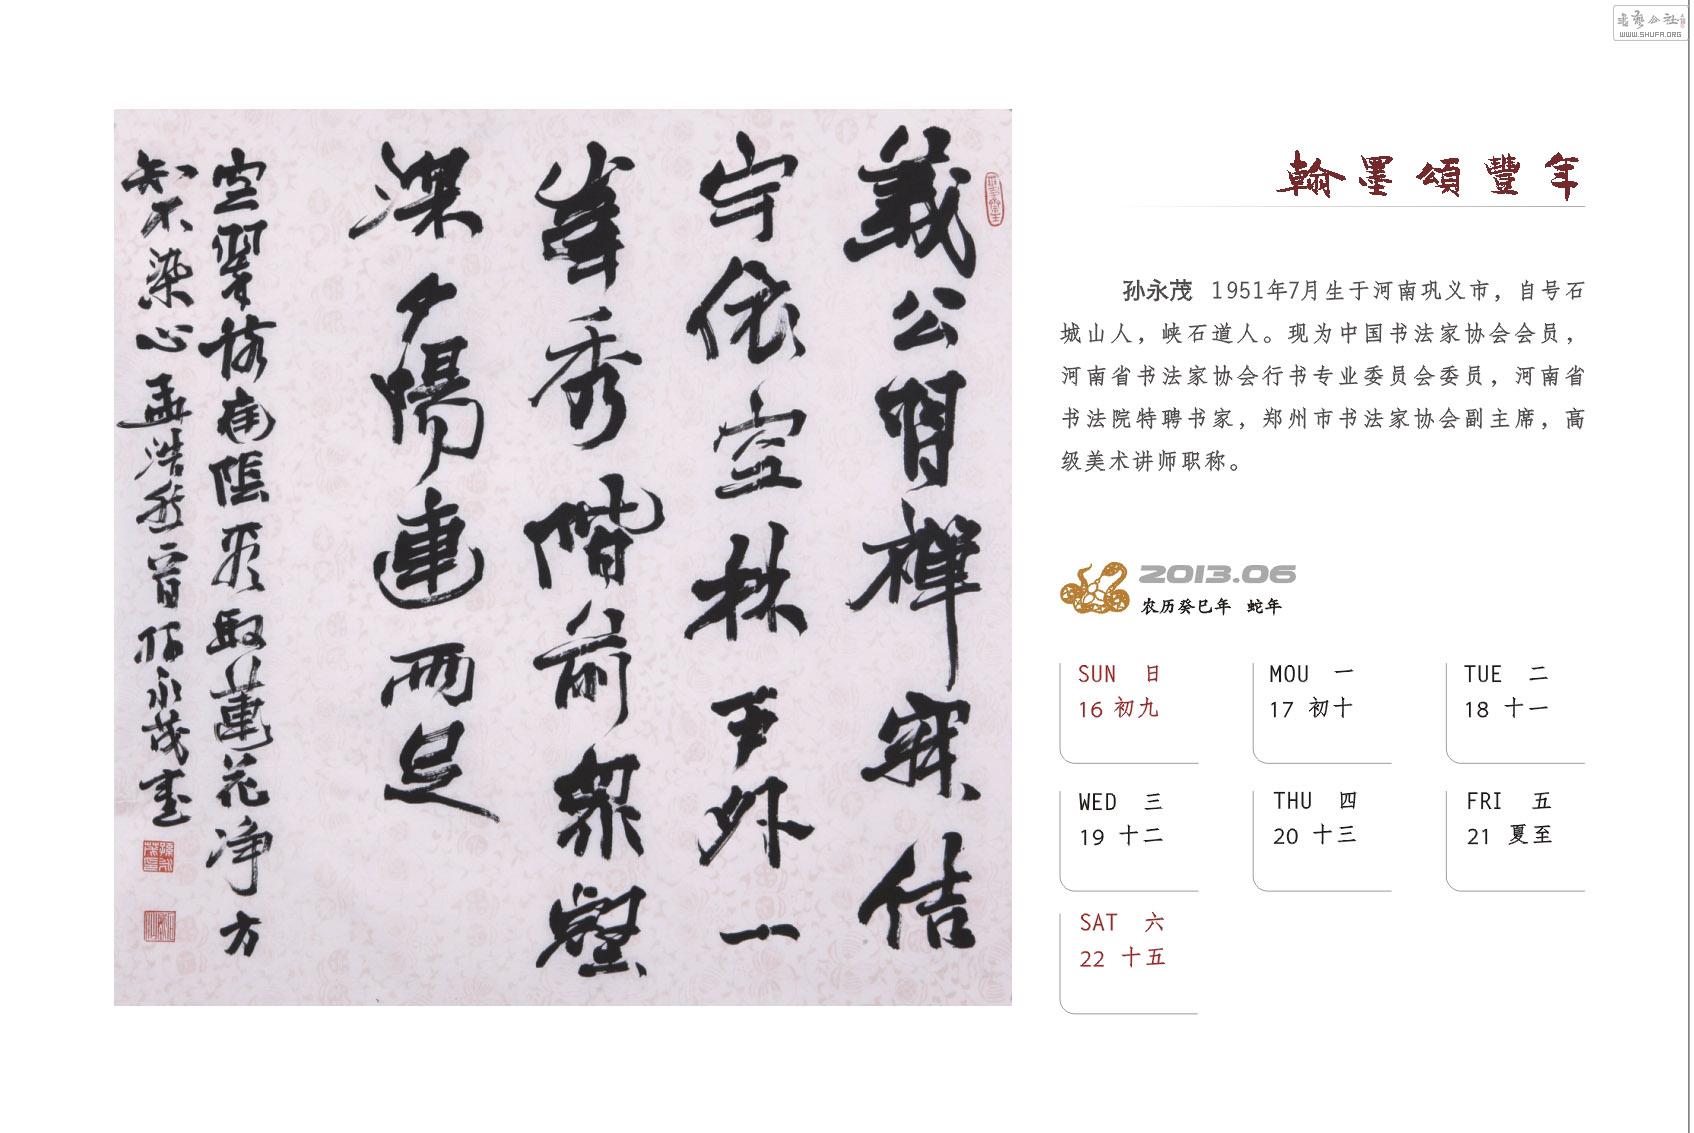 書藝公社
WWW.SHUFA.ORG
翰墨頌豐年
義公習禪寂結
宇依空林戶外一
峯秀階前眾壑
深夕陽連雨足
空翠落庭陰看取蓮花净方
知不染心孟浩然一首孫永茂書
孙永茂 1951年7月生于河南巩义市，自号石
城山人，峡石道人。现为中国书法家协会会员，
河南省书法家协会行书专业委员会委员，河南省
书法院特聘书家，郑州市书法家协会副主席，高
级美术讲师职称。
2013.06
农历癸巳年 蛇年
SUN 日
16 初九
MOU 一
17 初十
TUE 二
18 十一
WED 三
19 十二
THU 四
20 十三
FRI 五
21 夏至
SAT 六
22 十五